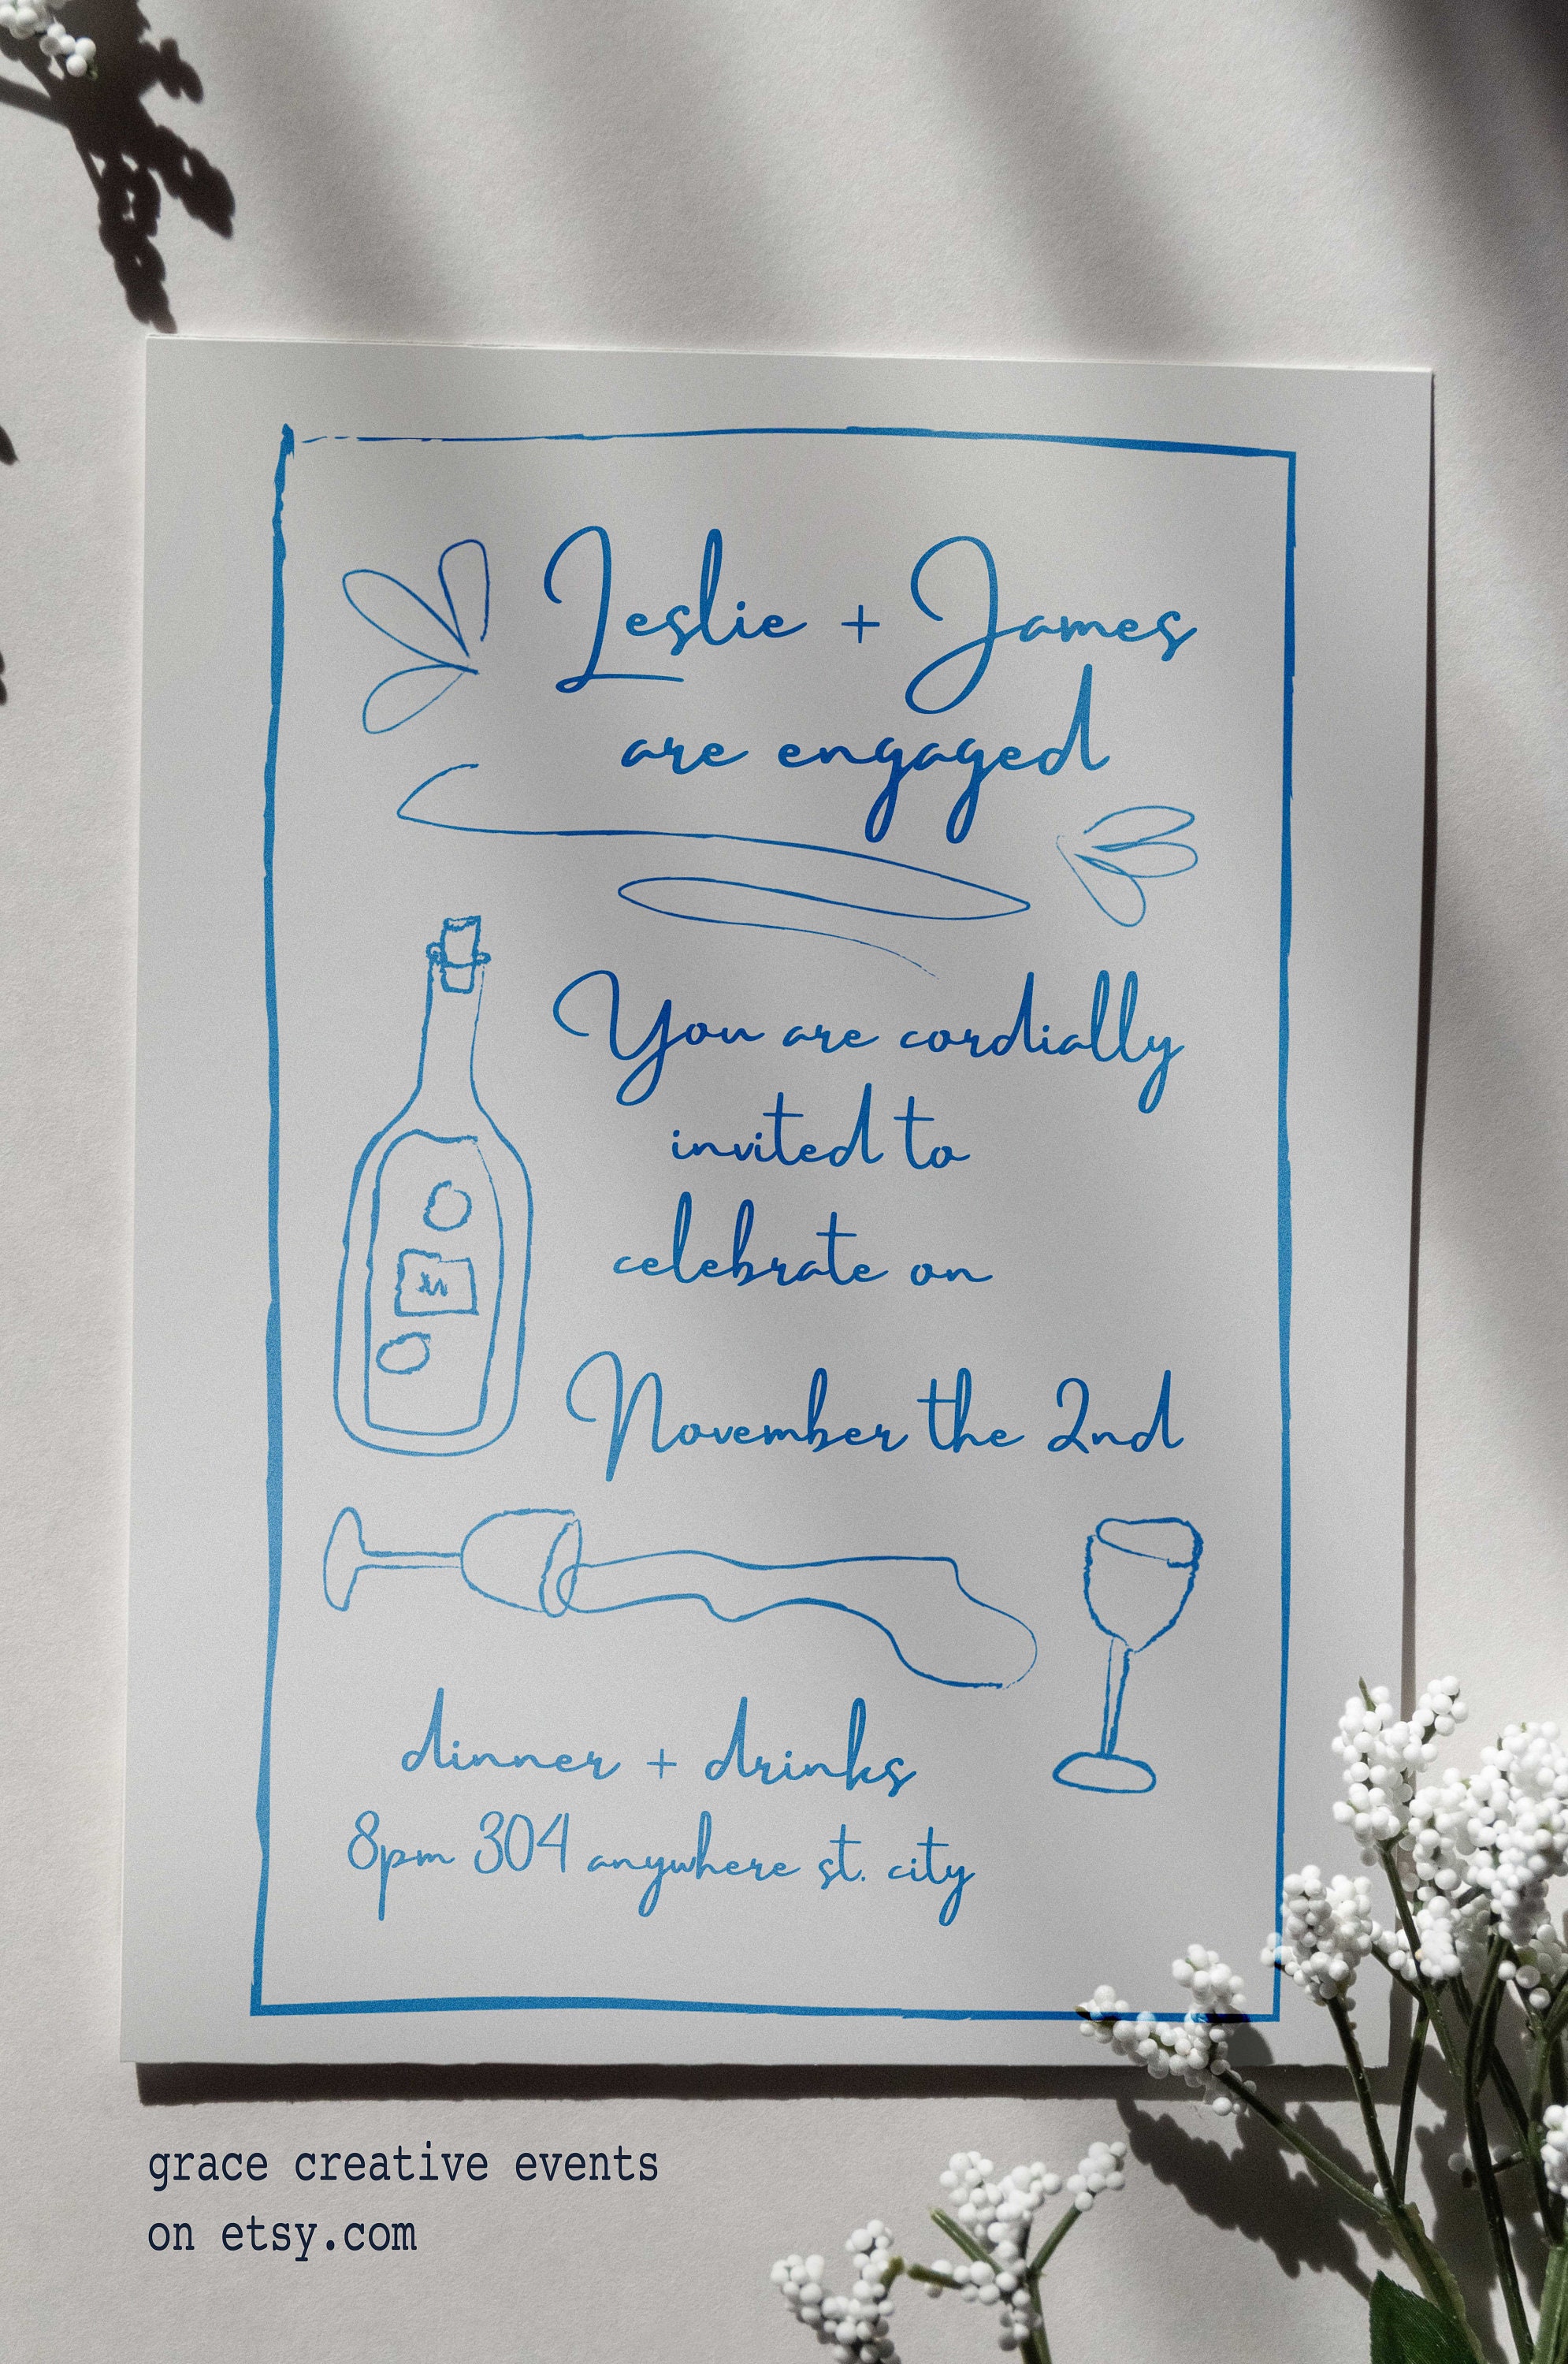 Leslie + James
are engaged
You are cordially
invited to
celebrate on
November the 2nd
dinner + drinks
8pm 304 anywhere st. city
grace creative events
on etsy.com